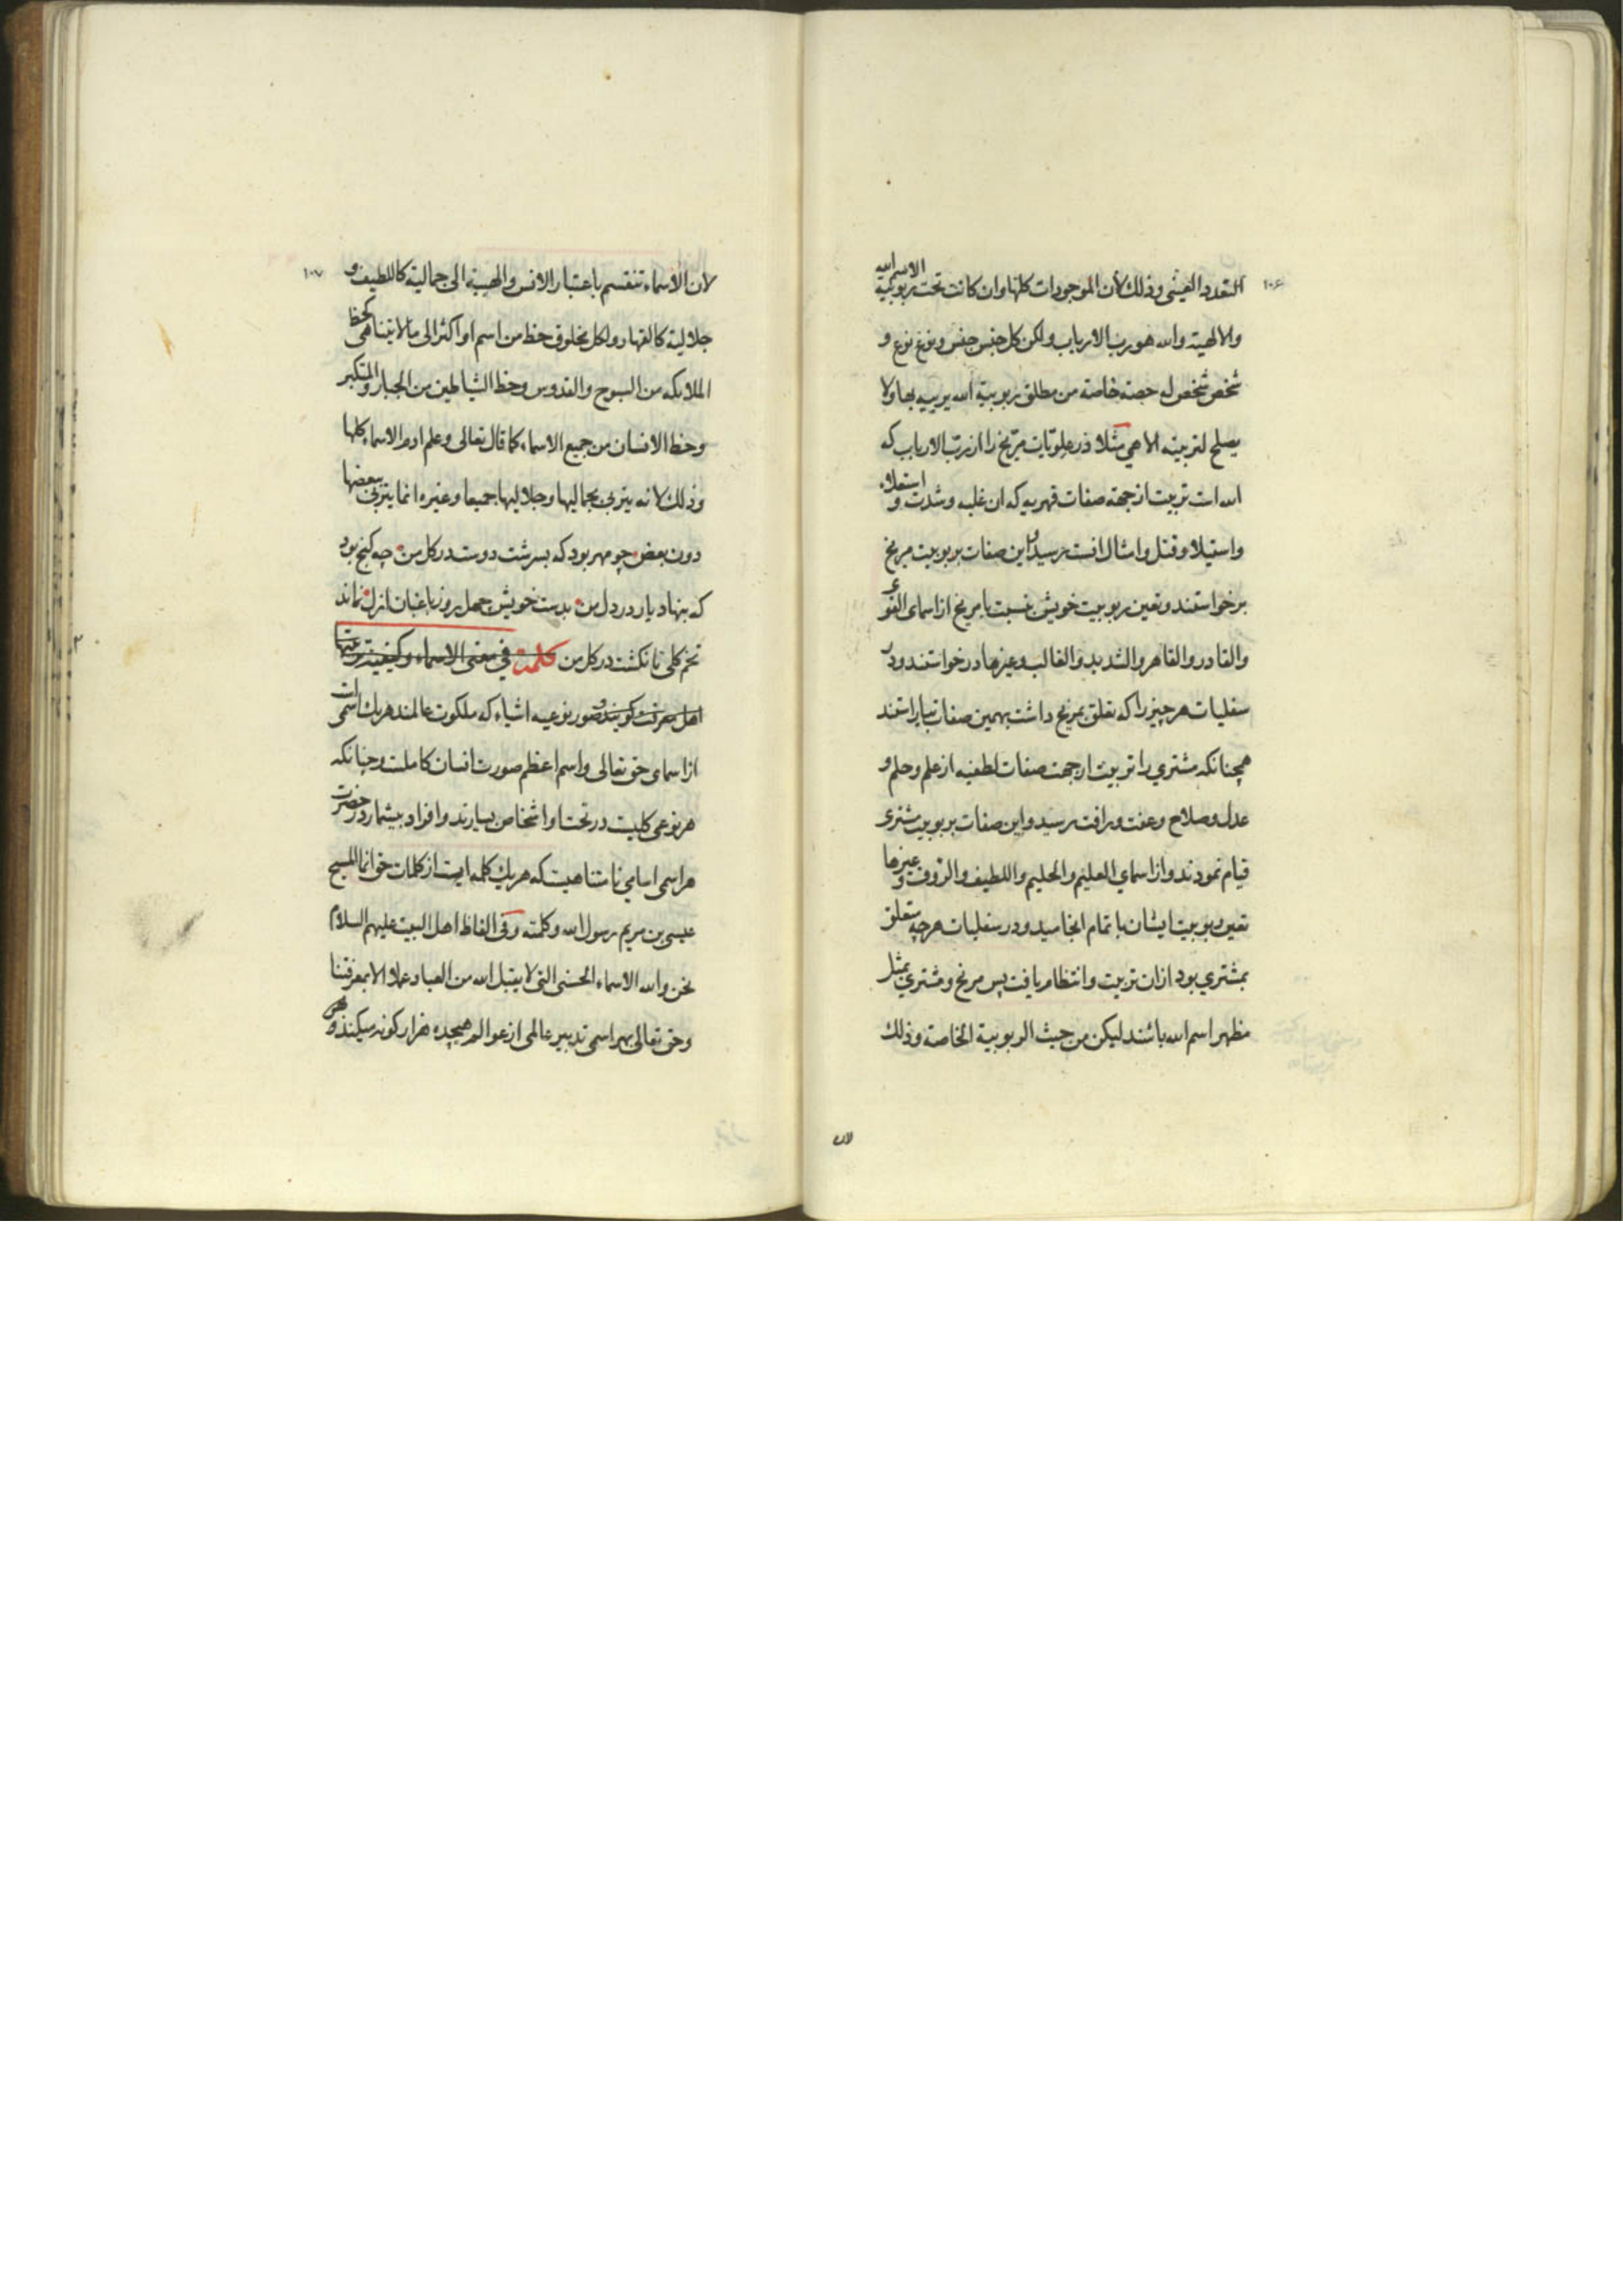 ۱۰۶
التعدد العینی وذلک لأن الموجودات کلها وان کانت تحت ربوبیة الاسم الله
والالهیة والله هو رب الارباب ولکن کل جنس جنس ونوع نوع و
شخص شخص له حصة خاصة من مطلق ربوبیة الله یربیه بها ولا
یصلح لتربیته الا هی مثلا در علویات مریخ را از رب الارباب که
الله است تربیت از جهة صفات قهریه که ان غلبه وشدت و استعلاء
واستیلا وقتل وامثال انست رسید و این صفات بربوبیت مریخ
برخواستند وتعین ربوبیت خویش نسبت با مریخ از اسمای القوی
والقادر والقاهر والشدید والغالب وغیرها درخواستند ودر
سفلیات هر چیز را که تعلق بمریخ داشت بهمین صفات بیاراستند
همچنانکه مشتری را تربیت از جهت صفات لطفیه از علم وحلم و
عدل وصلاح وعفت ورافت رسید واین صفات بربوبیت مشتری
قیام نمودند واز اسمای العلیم والحلیم واللطیف والرؤف وغیرها
تعین ربوبیت ایشان باتمام انجامید ودر سفلیات هر چه متعلق
بمشتری بود ازان تربیت وانتظام یافت پس مریخ ومشتری بمثل
مظهر اسم الله باشند لیکن من حیث الربوبیة الخاصة وذلک
لان
۱۰۷
لان الاسماء تنقسم باعتبار الانس والهیبة الی جمالیة کاللطیف و
جلالیة کالقهار ولکل مخلوق حظ من اسم او اکثر الی ما لا یتناهی کحظ
الملائکه من السبوح والقدوس وحظ الشیاطین من الجبار والمتکبر
وحظ الانسان من جمیع الاسماء کما قال تعالی وعلم ادم الاسماء کلها
وذلک لانه یتربی بجمالیها وجلالیها جمیعا وغیره انما یتربی ببعضها
دون بعض چو مهر بود که بسرشت دوست در کل من چه کنج بود
که بنهاد یار در دل من بدست خویش چهل روز باغبان ازل نماند
تخم کلی تا نکشت در کل من کلمة فی معنی الاسماء وکیفیة تربیتها
اهل معرفت کویند صور نوعیه اشیاء که ملکوت عالمند هریک اسمی است
از اسمای حق تعالی واسم اعظم صورت انسان کاملست وچنانکه
هر نوعی کلیت در تحت او اشخاص بسیارند وافراد بیشمار در حضرت
هر اسمی اسامی نامتناهیست که هر یک کلمه ایست از کلمات حق انما المسیح
عیسی بن مریم رسول الله وکلمته وفی الفاظ اهل البیت علیهم السلام
نحن والله الاسماء الحسنی التی لا یقبل الله من العباد عملا الا بمعرفتنا
وحق تعالی بهر اسمی تدبیر عالمی از عوالم هیجده هزار کونه میکند و هر